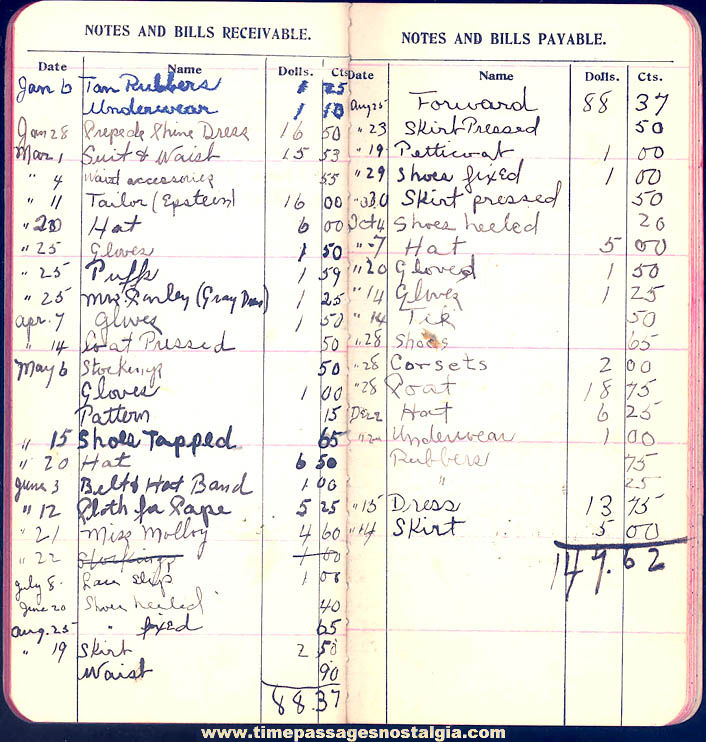 NOTES AND BILLS RECEIVABLE.
Date Name Dolls. Cts.
Jan 6 Tan Rubbers 1 25
Underwear 1 10
Jan 28 Shine Dress 16 50
Mar, 1 Suit & Waist 15 53
" 4 Waist accessories 55
" 11 Tailor (Epstein) 16 00
" 20 Hat 6 00
" 25 Gloves 1 50
" 25 Puffs 1 59
" 25 Mrs (Gray Dress) 1 25
Apr. 7 Gloves 1 50
" 14 Coat Pressed 50
May 6 Stockings 50
Gloves 1 00
Pattern 15
" 15 Shoes Tapped 65
" 20 Hat 6 50
June 3 Belt & Hat Band 1 00
" 12 Cloth for Cape 5 25
" 21 Miss Molloy 4 60
" 22 Stockings 1 00
July 8. slip 1 00
June 20 Shoes heeled 40
Aug. 25 " fixed 65
" 19 Skirt 2 50
Waist 90
88.37
NOTES AND BILLS PAYABLE.
Date Name Dolls. Cts.
Aug 25 Forward 88 37
" 23 Skirt Pressed 50
" 19 Petticoat 1 00
" 29 Shoes fixed 1 00
" 30 Skirt pressed 50
Oct 4 Shoes heeled 20
" 7 Hat 5 00
" 20 Gloves 1 50
" 14 Gloves 1 25
" 14 Tie 50
" 28 Shoes 65
" 28 Corsets 2 00
" 28 Coat 18 75
De 22 Hat 6 25
Underwear 1 00
Rubbers 75
" 25
" 15 Dress 13 75
" 14 Skirt 5 00
147.62
www.timepassagesnostalgia.com